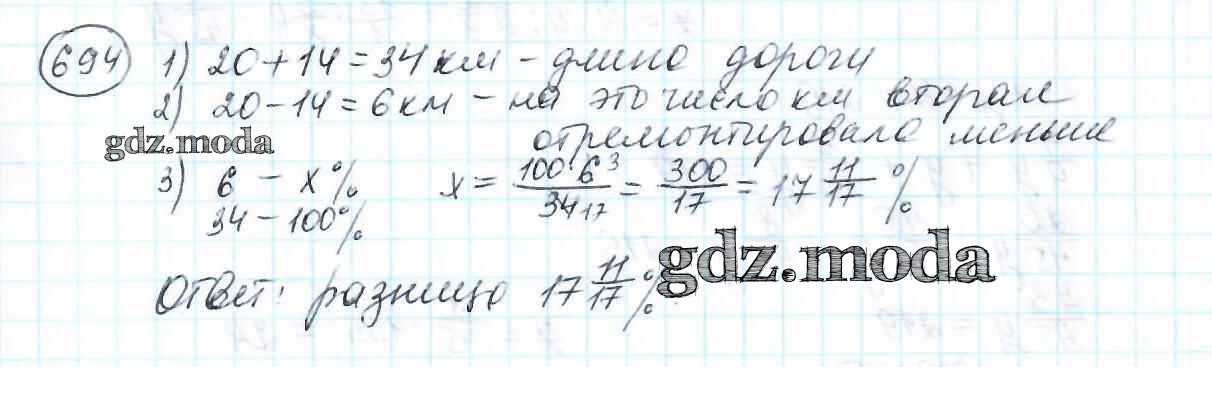 694 1) 20+14=34 км – длина дороги
2) 20-14=6 км – на это число км вторая
отремонтировала меньше
gdz.moda
3) 6 – x% x = 100·6³/34₁₇ = 300/17 = 17 11/17 %
34 – 100%
gdz.moda
Ответ: разница 17 11/17 %